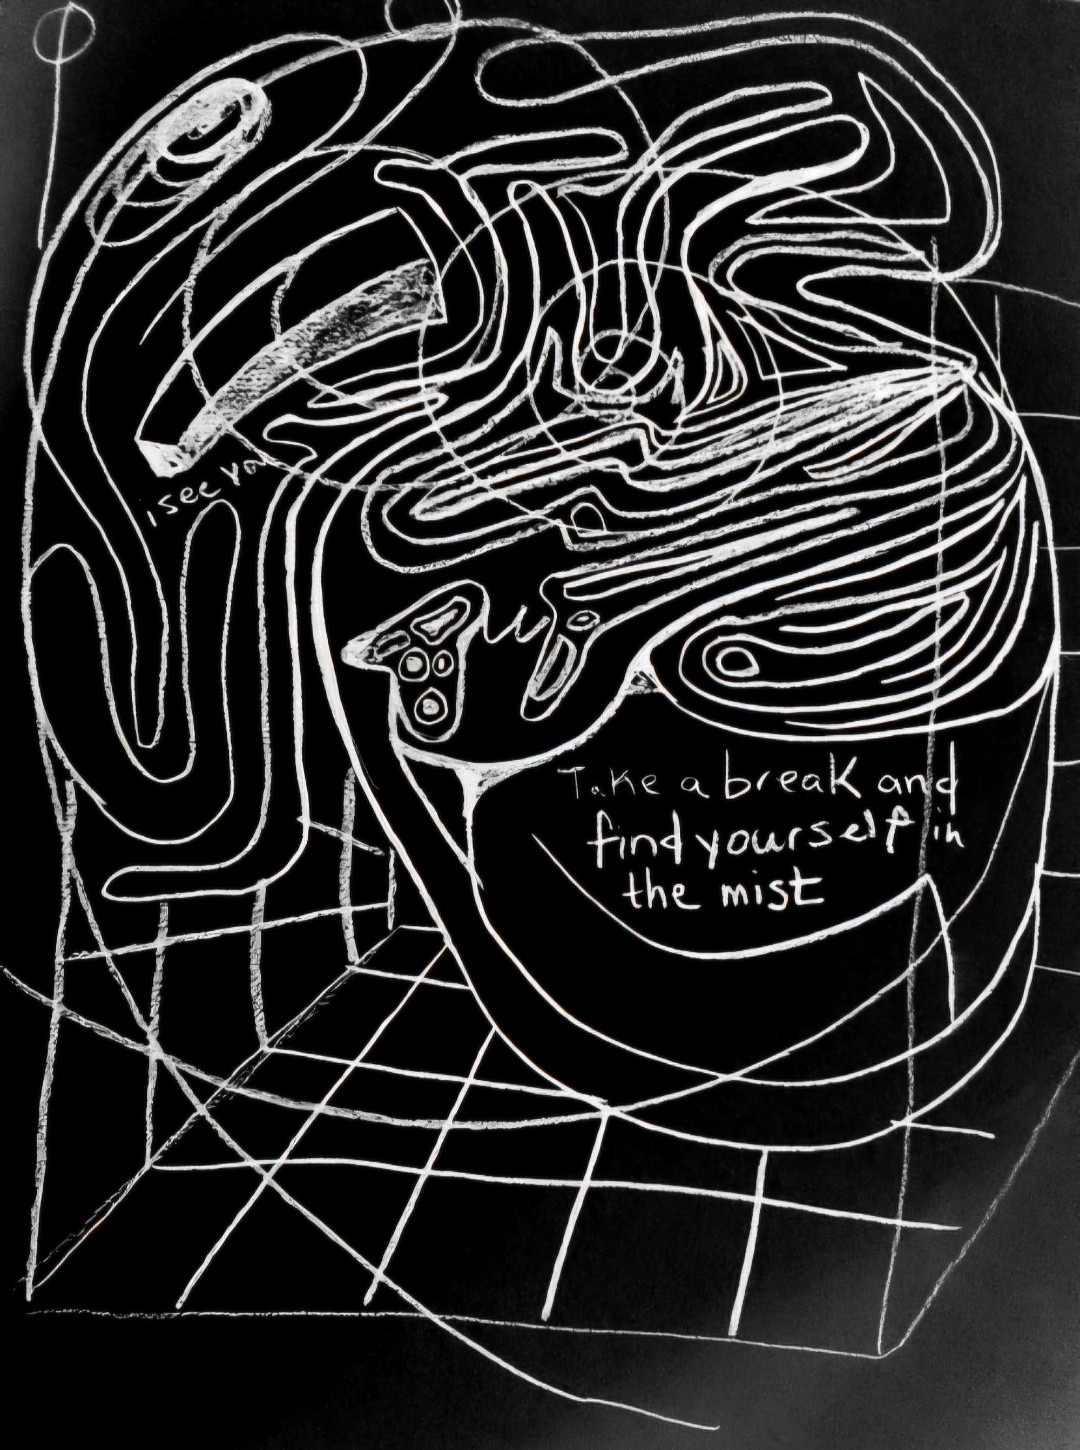 i see you
Take a break and
find yourself in
the mist